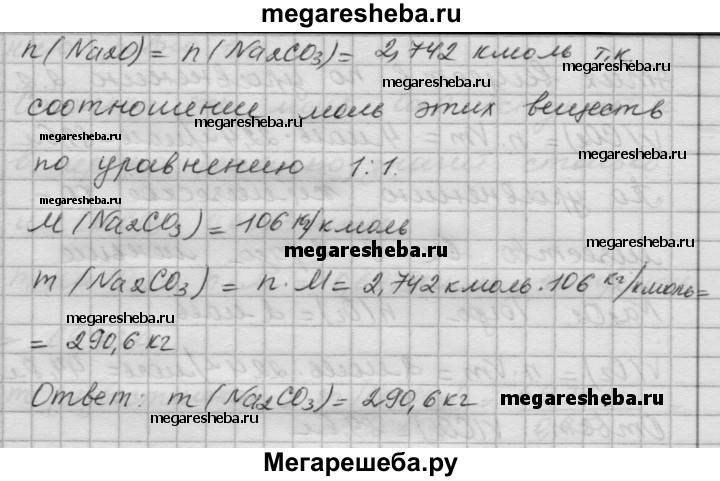 megaresheba.ru
n(Na2O) = n(Na2CO3) = 2,742 кмоль т.к
megaresheba.ru
соотношении моль этих веществ
megaresheba.ru
megaresheba.ru
по уравнению 1:1.
megaresheba.ru
M(Na2CO3) = 106 кг/кмоль
megaresheba.ru
megaresheba.ru
m(Na2CO3) = n·M = 2,742 кмоль·106 кг/кмоль=
megaresheba.ru
megaresheba.ru
= 290,6 кг
Ответ: m(Na2CO3) = 290,6 кг
megaresheba.ru
megaresheba.ru
Мегарешеба.ру